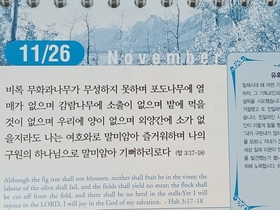 11/26
November
비록 무화과나무가 무성하지 못하며 포도나무에 열
매가 없으며 감람나무에 소출이 없으며 밭에 먹을
것이 없으며 우리에 양이 없으며 외양간에 소가 없
을지라도 나는 여호와로 말미암아 즐거워하며 나의
구원의 하나님으로 말미암아 기뻐하리로다 (합 3:17-18)
Although the fig tree shall not blossom, neither shall fruit be in the vines; the
labour of the olive shall fail, and the fields shall yield no meat; the flock shall
be cut off from the fold, and there shall be no herd in the stalls:Yet I will
rejoice in the LORD, I will joy in the God of my salvation. - Hab 3:17-18